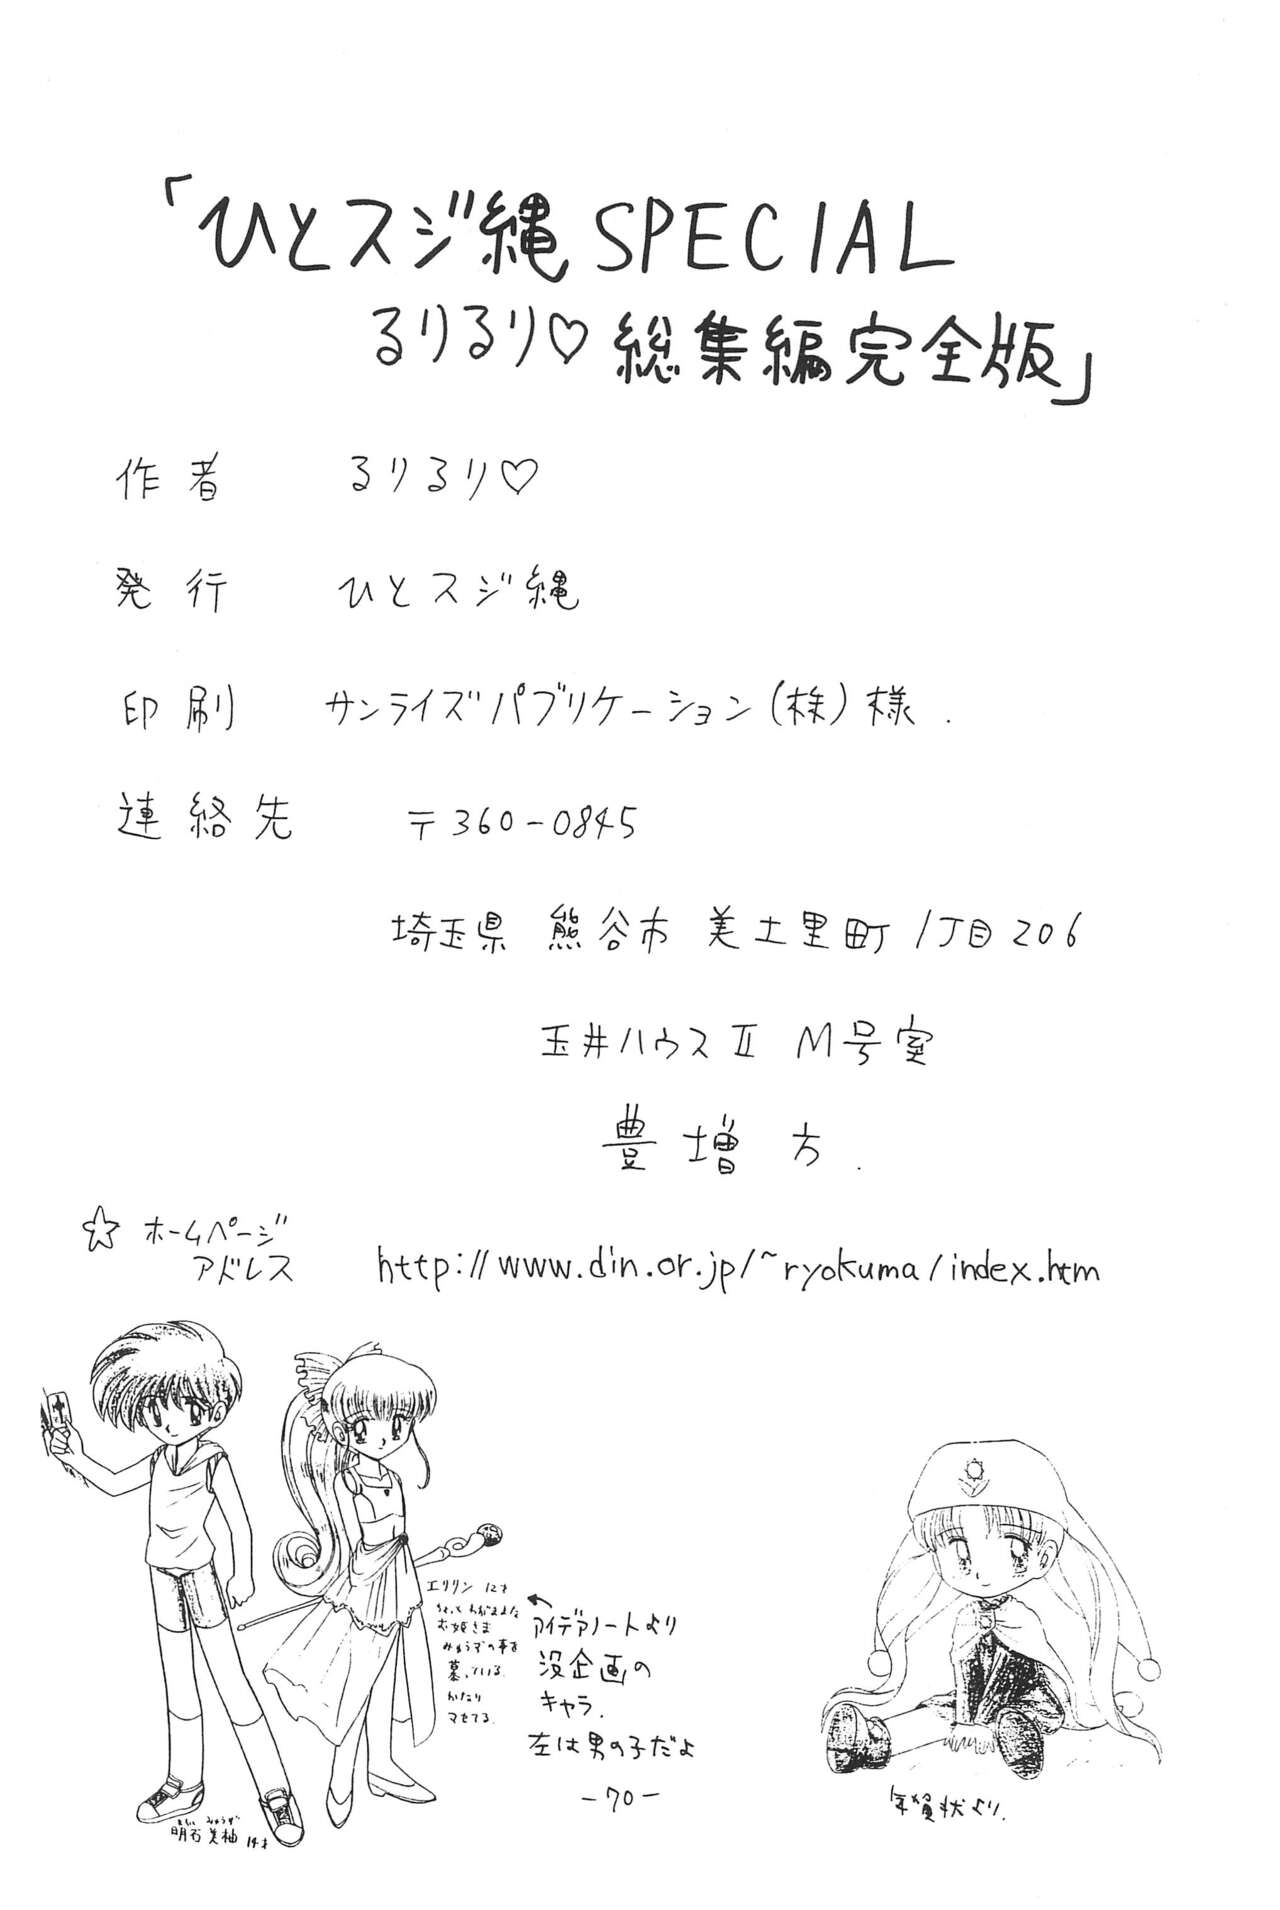 「ひとスジ縄 SPECIAL
るりるり♡総集編完全版」
作者 るりるり♡
発行 ひとスジ縄
印刷 サンライズパブリケーション(株)様.
連絡先 〒360-0845
埼玉県 熊谷市 美土里町 1丁目206
玉井ハウスⅡ M号室
豊増方.
☆ ホームページ
アドレス http://www.din.or.jp/~ryokuma/index.htm
エリリン 12才
ちょっとわがままな
お姫さま
みゅうずの事を
慕っている.
かなり
マセてる.
アイデアノートより
没企画の
キャラ.
左は男の子だよ
みゅうず
明石 美柚 14才
年賀状より.
-70-